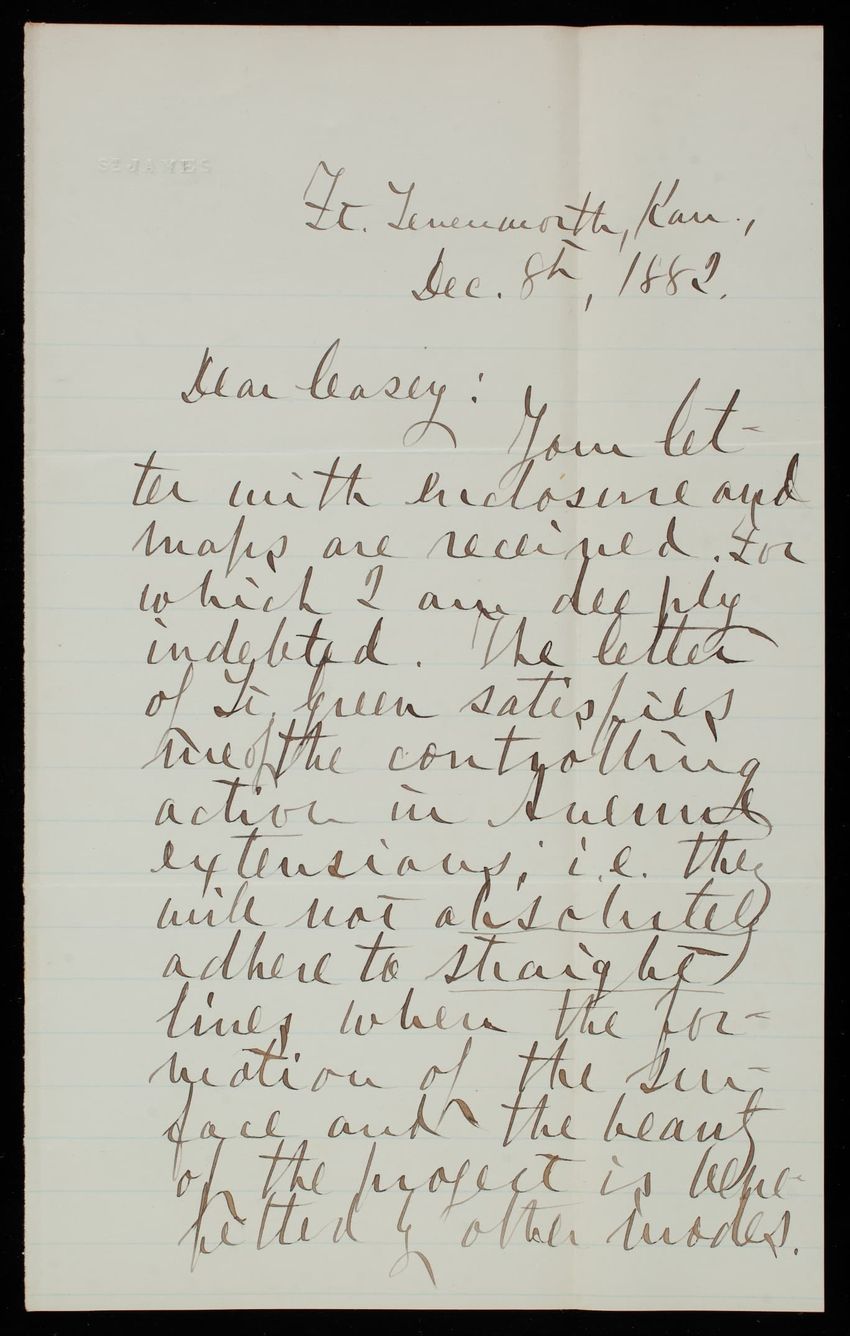 ST JAMES
Ft. Levenworth, Kan.,
Dec. 8th, 1882.
Dear Casey:
Your let-
ter with enclosure and
maps are received. For
which I am deeply
indebted. The letter
of Lt. Green satisfies
me of the controlling
action in Avenue
extensions; i.e. they
will not absolutely
adhere to straight
lines when the for-
mation of the sur-
face and the beauty
of the project is bene-
fitted by other modes.